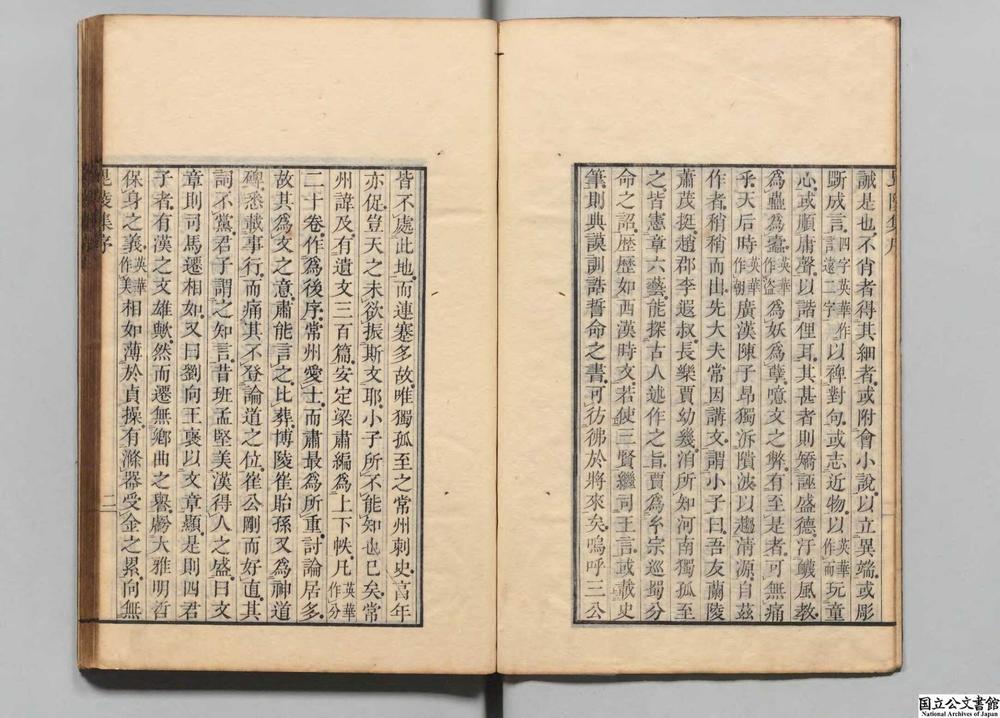 毘陵集序
誠是也不肖者得其細者或附會小說以立異端或彫
斲成言四字英華作言遠二字以裨對句或志近物以英華作而玩童
心或順庸聲以諧俚耳其甚者則矯誣盛德汙衊風教
為蠱為蠹英華作盜為妖為孽噫文之弊有至是者可無痛
乎天后時英華作朝廣漢陳子昂獨泝隤波以趨清源自茲
作者稍稍而出先大夫常因講文謂小子曰吾友蘭陵
蕭茂挺趙郡李遐叔長樂賈幼幾洎所知河南獨孤至
之皆憲章六藝能探古人述作之旨賈為玄宗巡蜀分
命之詔歷歷如西漢時文若使三賢繼司王言或載史
筆則典謨訓誥誓命之書可彷彿於將來矣嗚呼三公
皆不處此地而連蹇多故唯獨孤至之常州刺史享年
亦促豈天之未欲振斯文耶小子所不能知也已矣常
州諱及有遺文三百篇安定梁肅編為上下帙凡英華作分
二十卷作為後序常州愛士而肅最為所重討論居多
故其為文之意肅能言之比葬博陵崔貽孫又為神道
碑悉載事行而痛其不登論道之位崔公剛而好直其
詞不黨君子謂之知言昔班孟堅美漢得人之盛曰文
章則司馬遷相如又曰劉向王襃以文章顯是則四君
子者有漢之文雄歟然而遷無鄉曲之譽虧大雅明哲
保身之義英華作美相如薄於貞操有滌器受金之累向無
毘陵集序
二
国立公文書館
National Archives of Japan